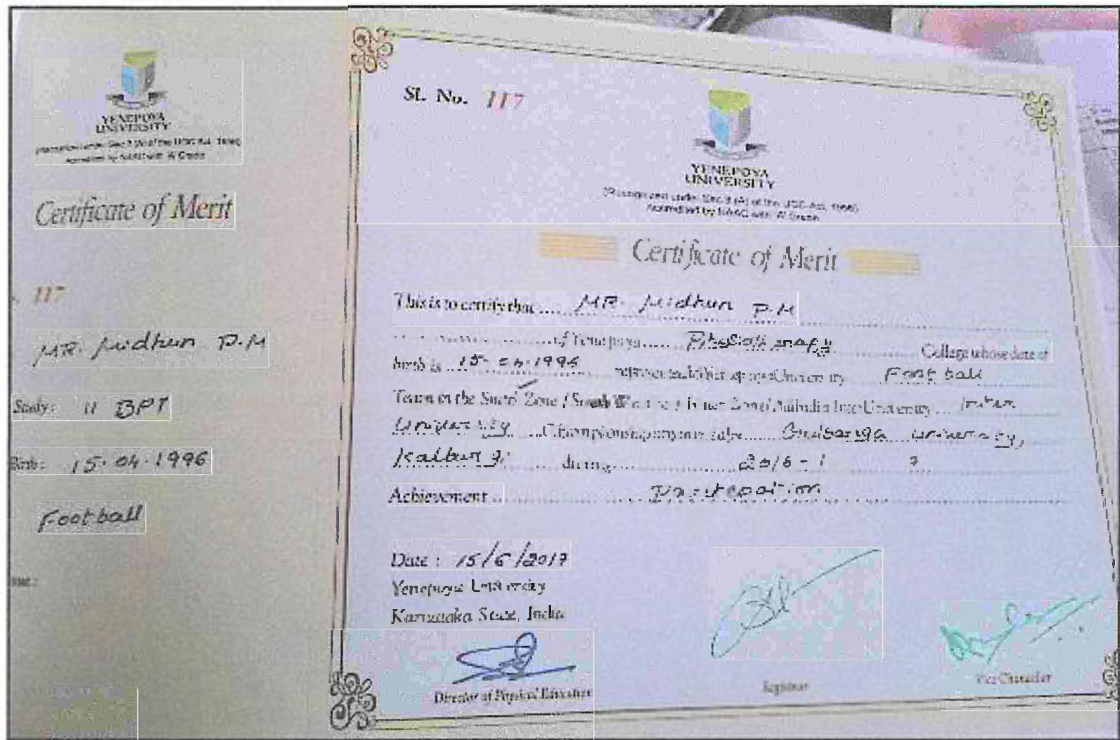 YENEPOYA
UNIVERSITY
Certificate of Merit
117
MR. Midhun P.M
Study : II BPT
Birth : 15-04-1996
Football
Sl. No. 117
YENEPOYA
UNIVERSITY
(Recognized under Sec 3 (A) of the UGC Act, 1956)
Accredited by NAAC with 'A' Grade
Certificate of Merit
This is to certify that MR. Midhun P.M
of Yenepoya College whose date of
birth is 15-04-1996 represented Yenepoya University Football
Team in the Zone / South West Zone / Inter Zone / All India Inter University Inter
University Championship University,
during 2016-1
Achievement
Date : 15/6/2017
Yenepoya University
Karnataka State, India
Director of Physical Education
Registrar
Vice Chancellor